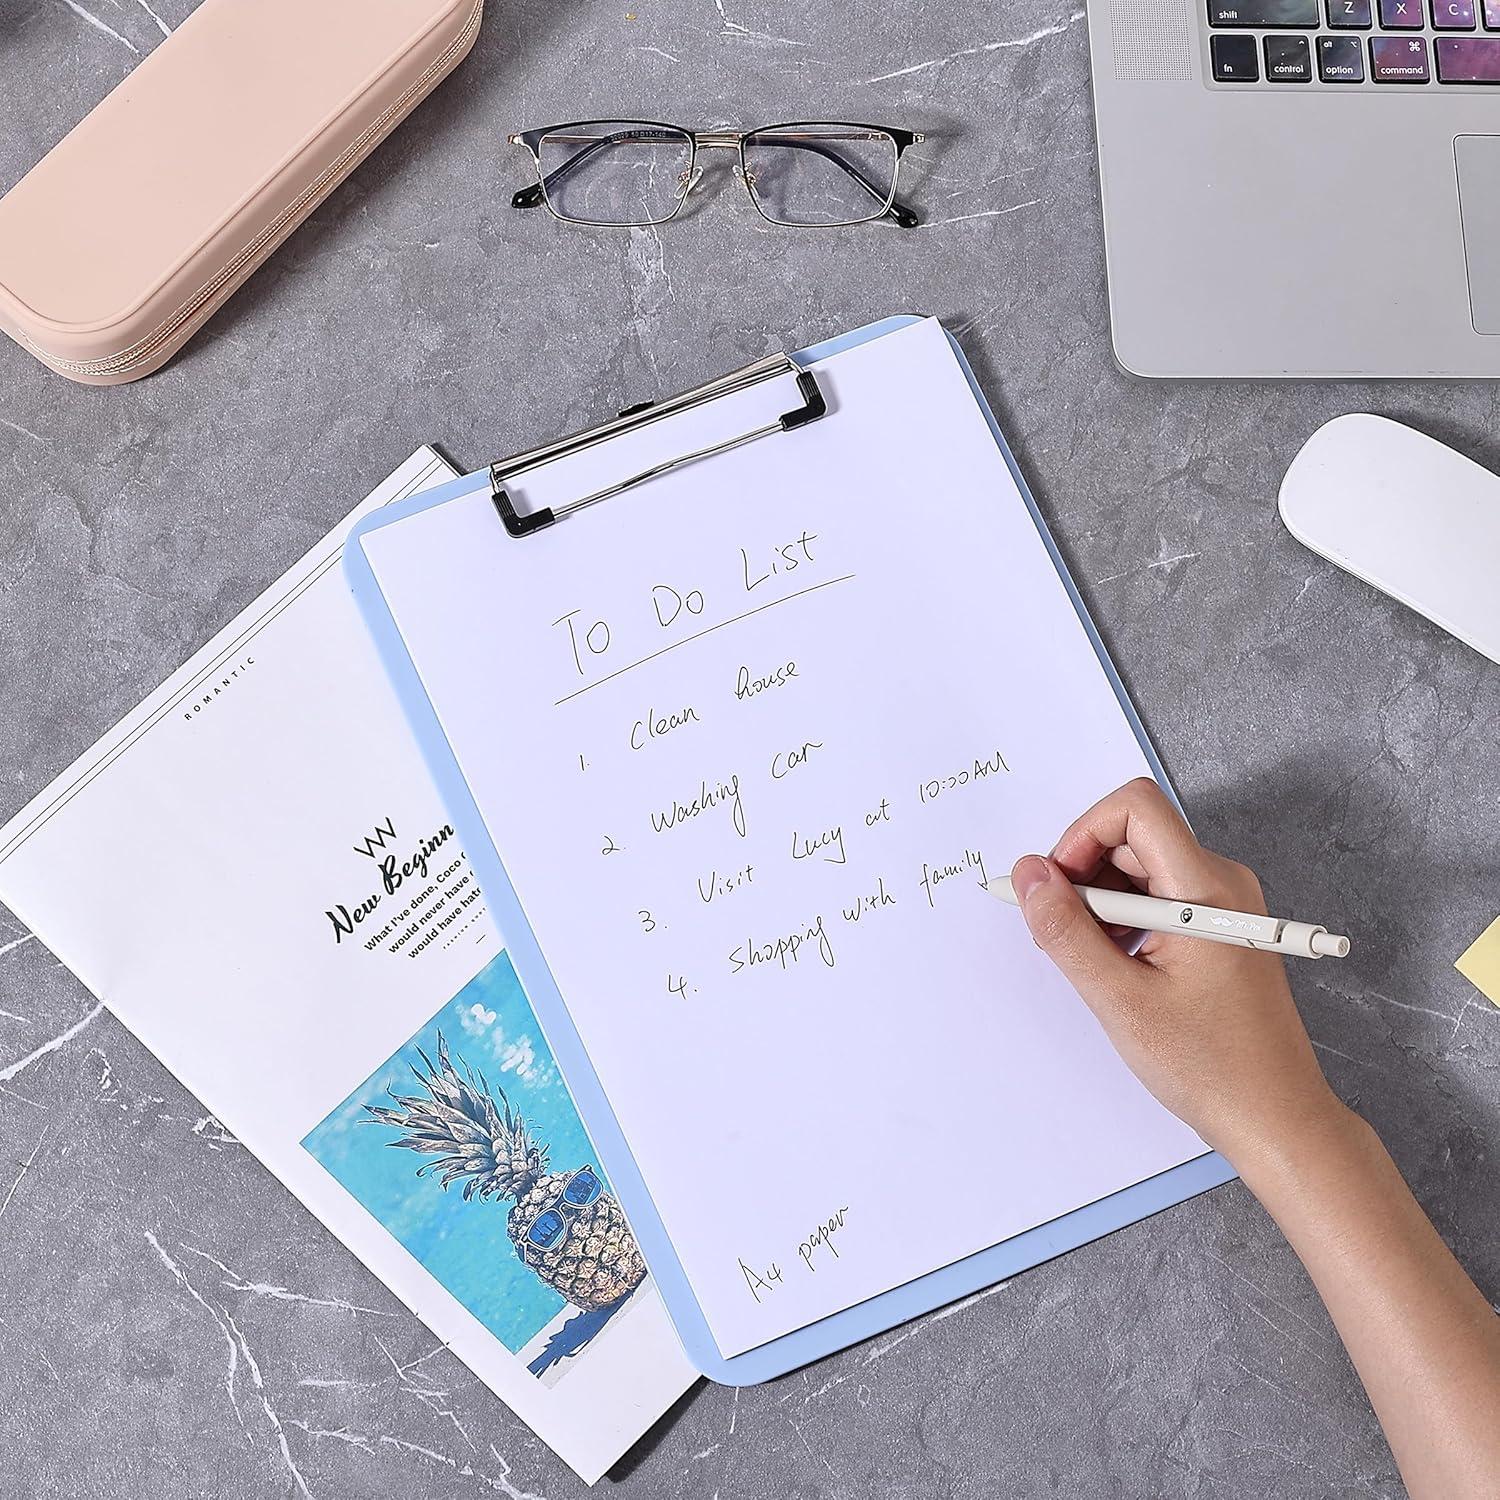 shift
Z
X
C
fn
control
alt
option
⌘
command
50□17-140
To Do List
1. Clean house
2. Washing car
3. Visit Lucy at 10:00AM
4. Shopping with family
A4 paper
ROMANTIC
New Beginn
What I've done, Coco
would never have
would have hat